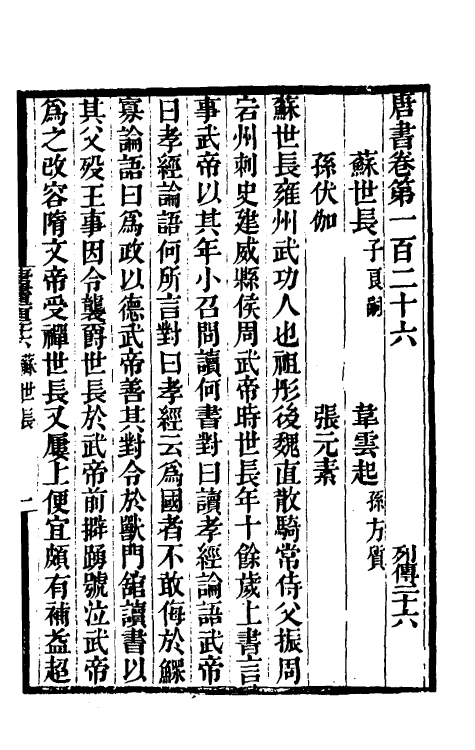 唐書卷第一百二十六　列傳二十六
蘇世長子良嗣　韋雲起孫方質
孫伏伽　張元素
蘇世長雍州武功人也祖彤後魏直散騎常侍父振周
宕州刺史建威縣侯周武帝時世長年十餘歲上書言
事武帝以其年小召問讀何書對曰讀孝經論語武帝
曰孝經論語何所言對曰孝經云為國者不敢侮於鰥
寡論語曰為政以德武帝善其對令於獸門館讀書以
其父歿王事因令襲爵世長於武帝前擗踴號泣武帝
為之改容隋文帝受禪世長又屢上便宜頗有補益超
蘇世長　一